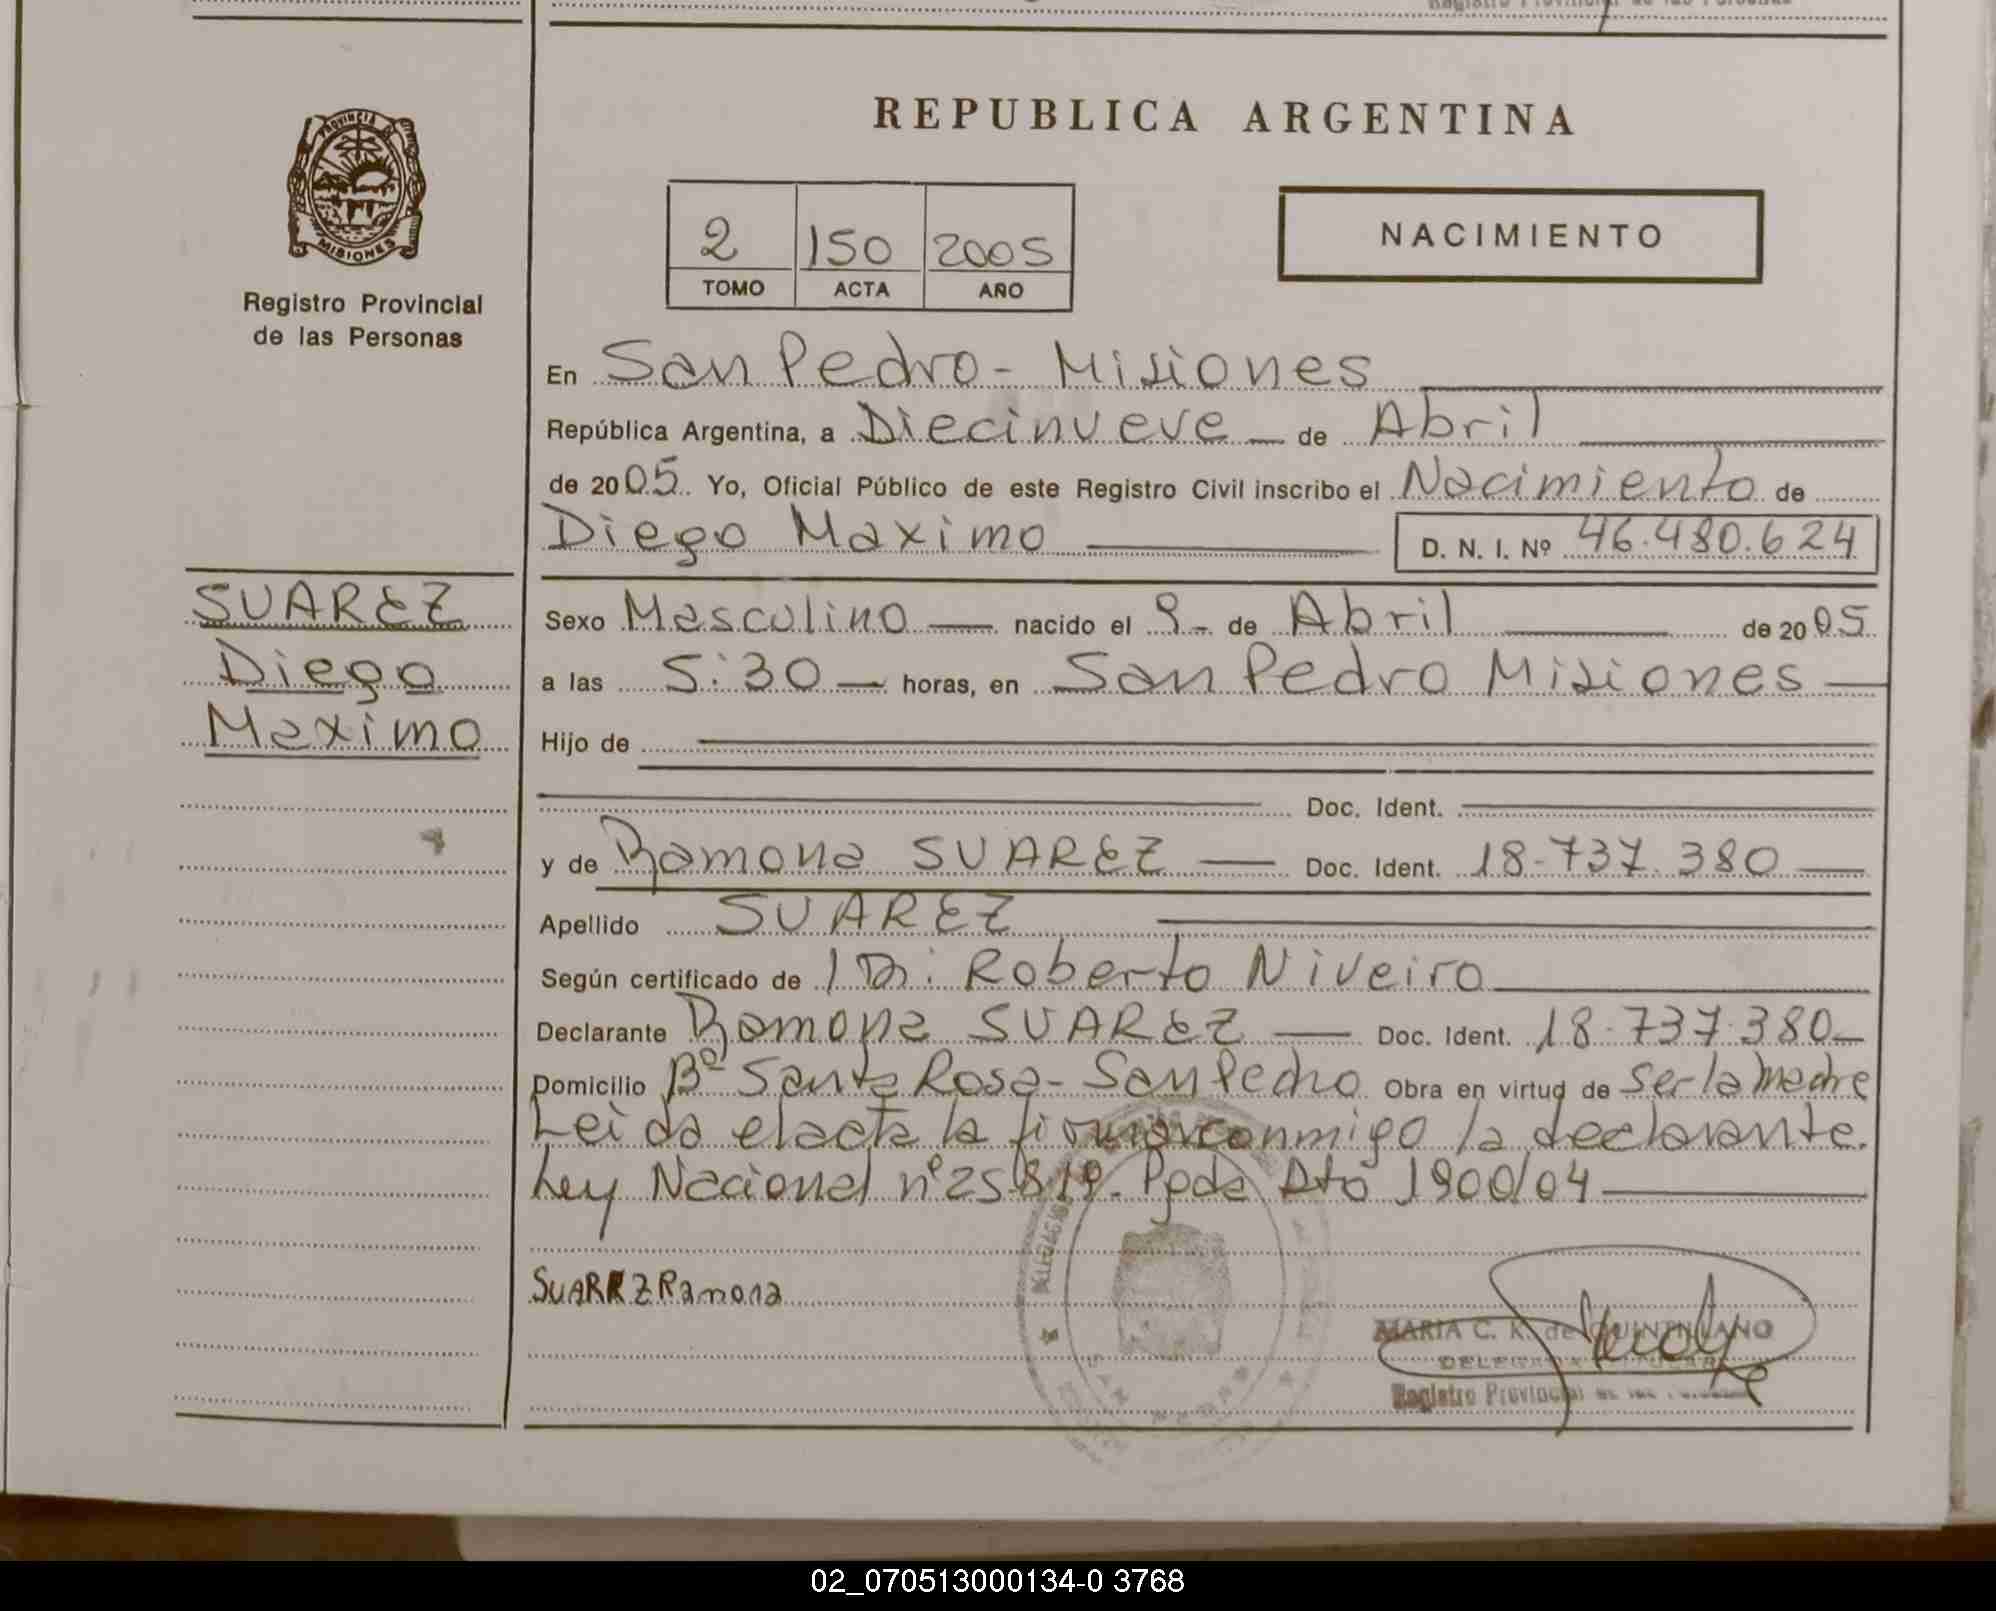 REPUBLICA ARGENTINA
PROVINCIA DE
MISIONES
Registro Provincial
de las Personas
2 150 2005
TOMO ACTA AÑO
NACIMIENTO
En San Pedro - Misiones
República Argentina, a Diecinueve de Abril
de 2005. Yo, Oficial Público de este Registro Civil inscribo el Nacimiento de
Diego Maximo D. N. I. Nº 46.480.624
SUAREZ
Diego
Maximo
Sexo Masculino nacido el 9 - de Abril de 2005
a las 5:30 horas, en San Pedro Misiones
Hijo de
Doc. Ident.
y de Ramona SUAREZ Doc. Ident. 18.737.380
Apellido SUAREZ
Según certificado de Roberto Niveiro
Declarante Ramona SUAREZ Doc. Ident. 18.737.380
Domicilio Bº Santa Rosa - San Pedro Obra en virtud de Ser la madre
Leida el acta la firma conmigo la declarante.
Ley Nacional nº 25.819. Dto 1900/04
SUAREZ Ramona
MARIA C. K. de QUINTILIANO
DELEGADA TITULAR
Registro Provincial de las Personas
02_070513000134-0 3768